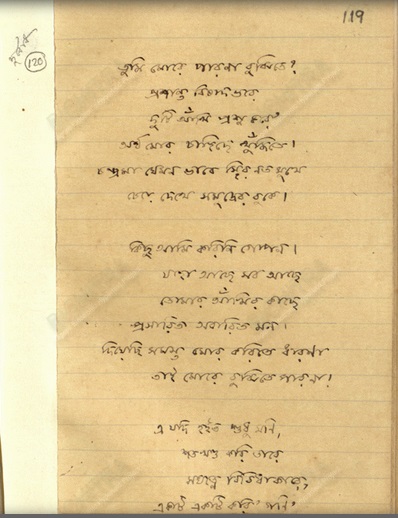 119
দুর্বোধ
120
তুমি মোরে পারনা বুঝিতে?
প্রশান্ত বিষাদভরে
দুটি আঁখি প্রশ্ন করে'
অর্থ মোর চাহিছে খুঁজিতে।
চন্দ্রমা যেমন ভাবে স্থির নত মুখে
চেয়ে দেখে সমুদ্রের বুকে।
কিছু আমি করিনি গোপন।
যাহা আছে সব আছে
তোমার আঁখির কাছে
প্রসারিত অবারিত মন।
দিয়েছি সমস্ত মোর করিতে ধারণা
তাই মোরে বুঝিতে পার না!
এ যদি হইত শুধু মণি,
শতখণ্ড করি তারে
সযত্নে বিবিধাকারে,
একটি একটি করি' গণি'